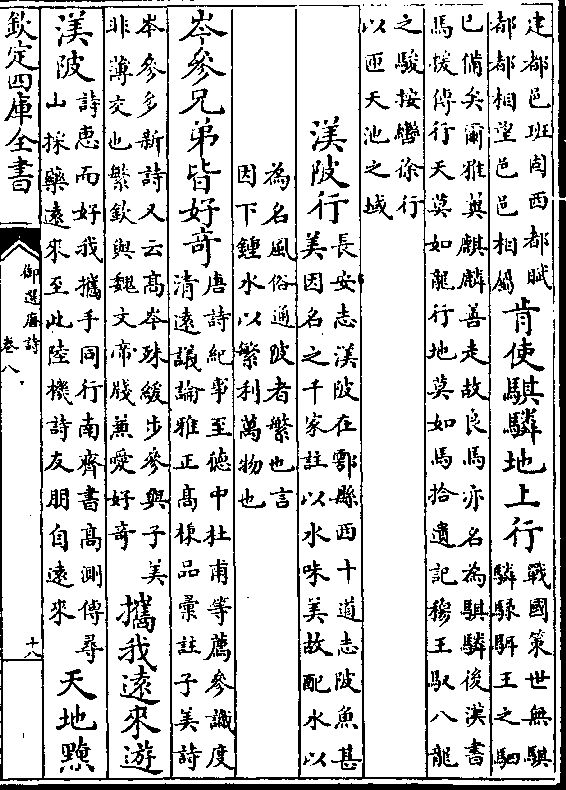 建都邑班固西都賦
都都相望邑邑相屬
肯使騏驎地上行
戰國策世無騏
驎騄駬王之駟
已備矣爾雅英麒麟善走故良馬亦名為騏驎後漢書
馬援傳行天莫如龍行地莫如馬拾遺記穆王馭八龍
之駿按轡徐行
以匝天池之域
渼陂行
長安志渼陂在鄠縣西十道志陂魚甚
美因名之千家註以水味美故配水以
為名風俗通陂者繁也言
因下鍾水以繁利萬物也
岑參兄弟皆好奇
唐詩紀事至德中杜甫等薦參識度
清遠議論雅正高棅品彙註子美詩
岑參多新詩又云高岑殊緩步參與子美
非薄交也繁欽與魏文帝牋兼愛好奇
攜我遠來遊
渼陂
詩惠而好我攜手同行南齊書高測傳尋
山採藥遠來至此陸機詩友朋自遠來
天地黤
欽定四庫全書
御選唐詩
卷八
十八